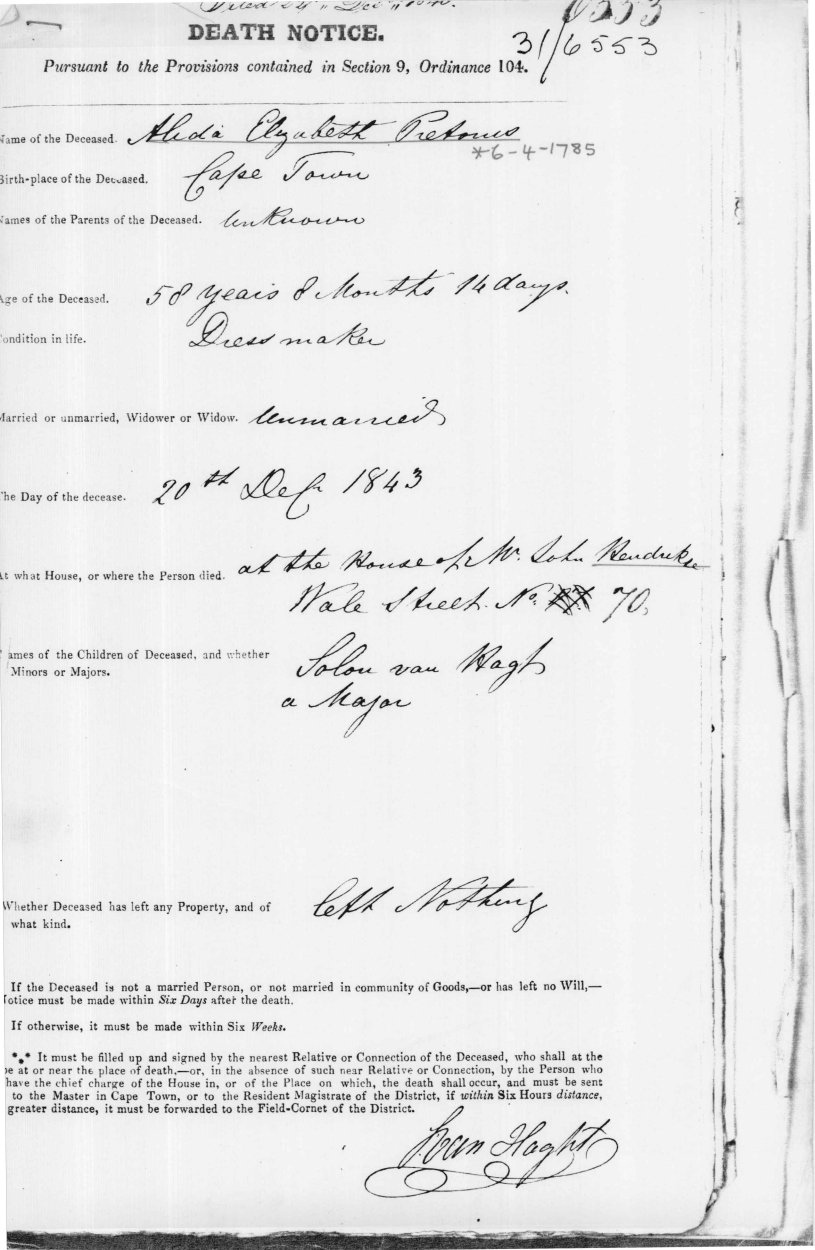 Filed 24th Dec
6553
DEATH NOTICE.
31/6553
Pursuant to the Provisions contained in Section 9, Ordinance 104.
Name of the Deceased. Alida Elizabeth Pretorius
*6-4-1785
Birth-place of the Deceased. Cape Town
Names of the Parents of the Deceased. Unknown
Age of the Deceased. 58 years 8 Months 14 days.
Condition in life. Dressmaker
Married or unmarried, Widower or Widow. Unmarried
The Day of the decease. 20th Decr 1843
At what House, or where the Person died. at the House of Mr. John Hendrikse
Wale Street. No. 70,
Names of the Children of Deceased, and whether
Minors or Majors. Solon van Hagt
a Major
Whether Deceased has left any Property, and of
what kind. left Nothing
If the Deceased is not a married Person, or not married in community of Goods,—or has left no Will,—
Notice must be made within Six Days after the death.
If otherwise, it must be made within Six Weeks.
*⁎* It must be filled up and signed by the nearest Relative or Connection of the Deceased, who shall at the
be at or near the place of death,—or, in the absence of such near Relative or Connection, by the Person who
have the chief charge of the House in, or of the Place on which, the death shall occur, and must be sent
to the Master in Cape Town, or to the Resident Magistrate of the District, if within Six Hours distance,
greater distance, it must be forwarded to the Field-Cornet of the District.
Haght